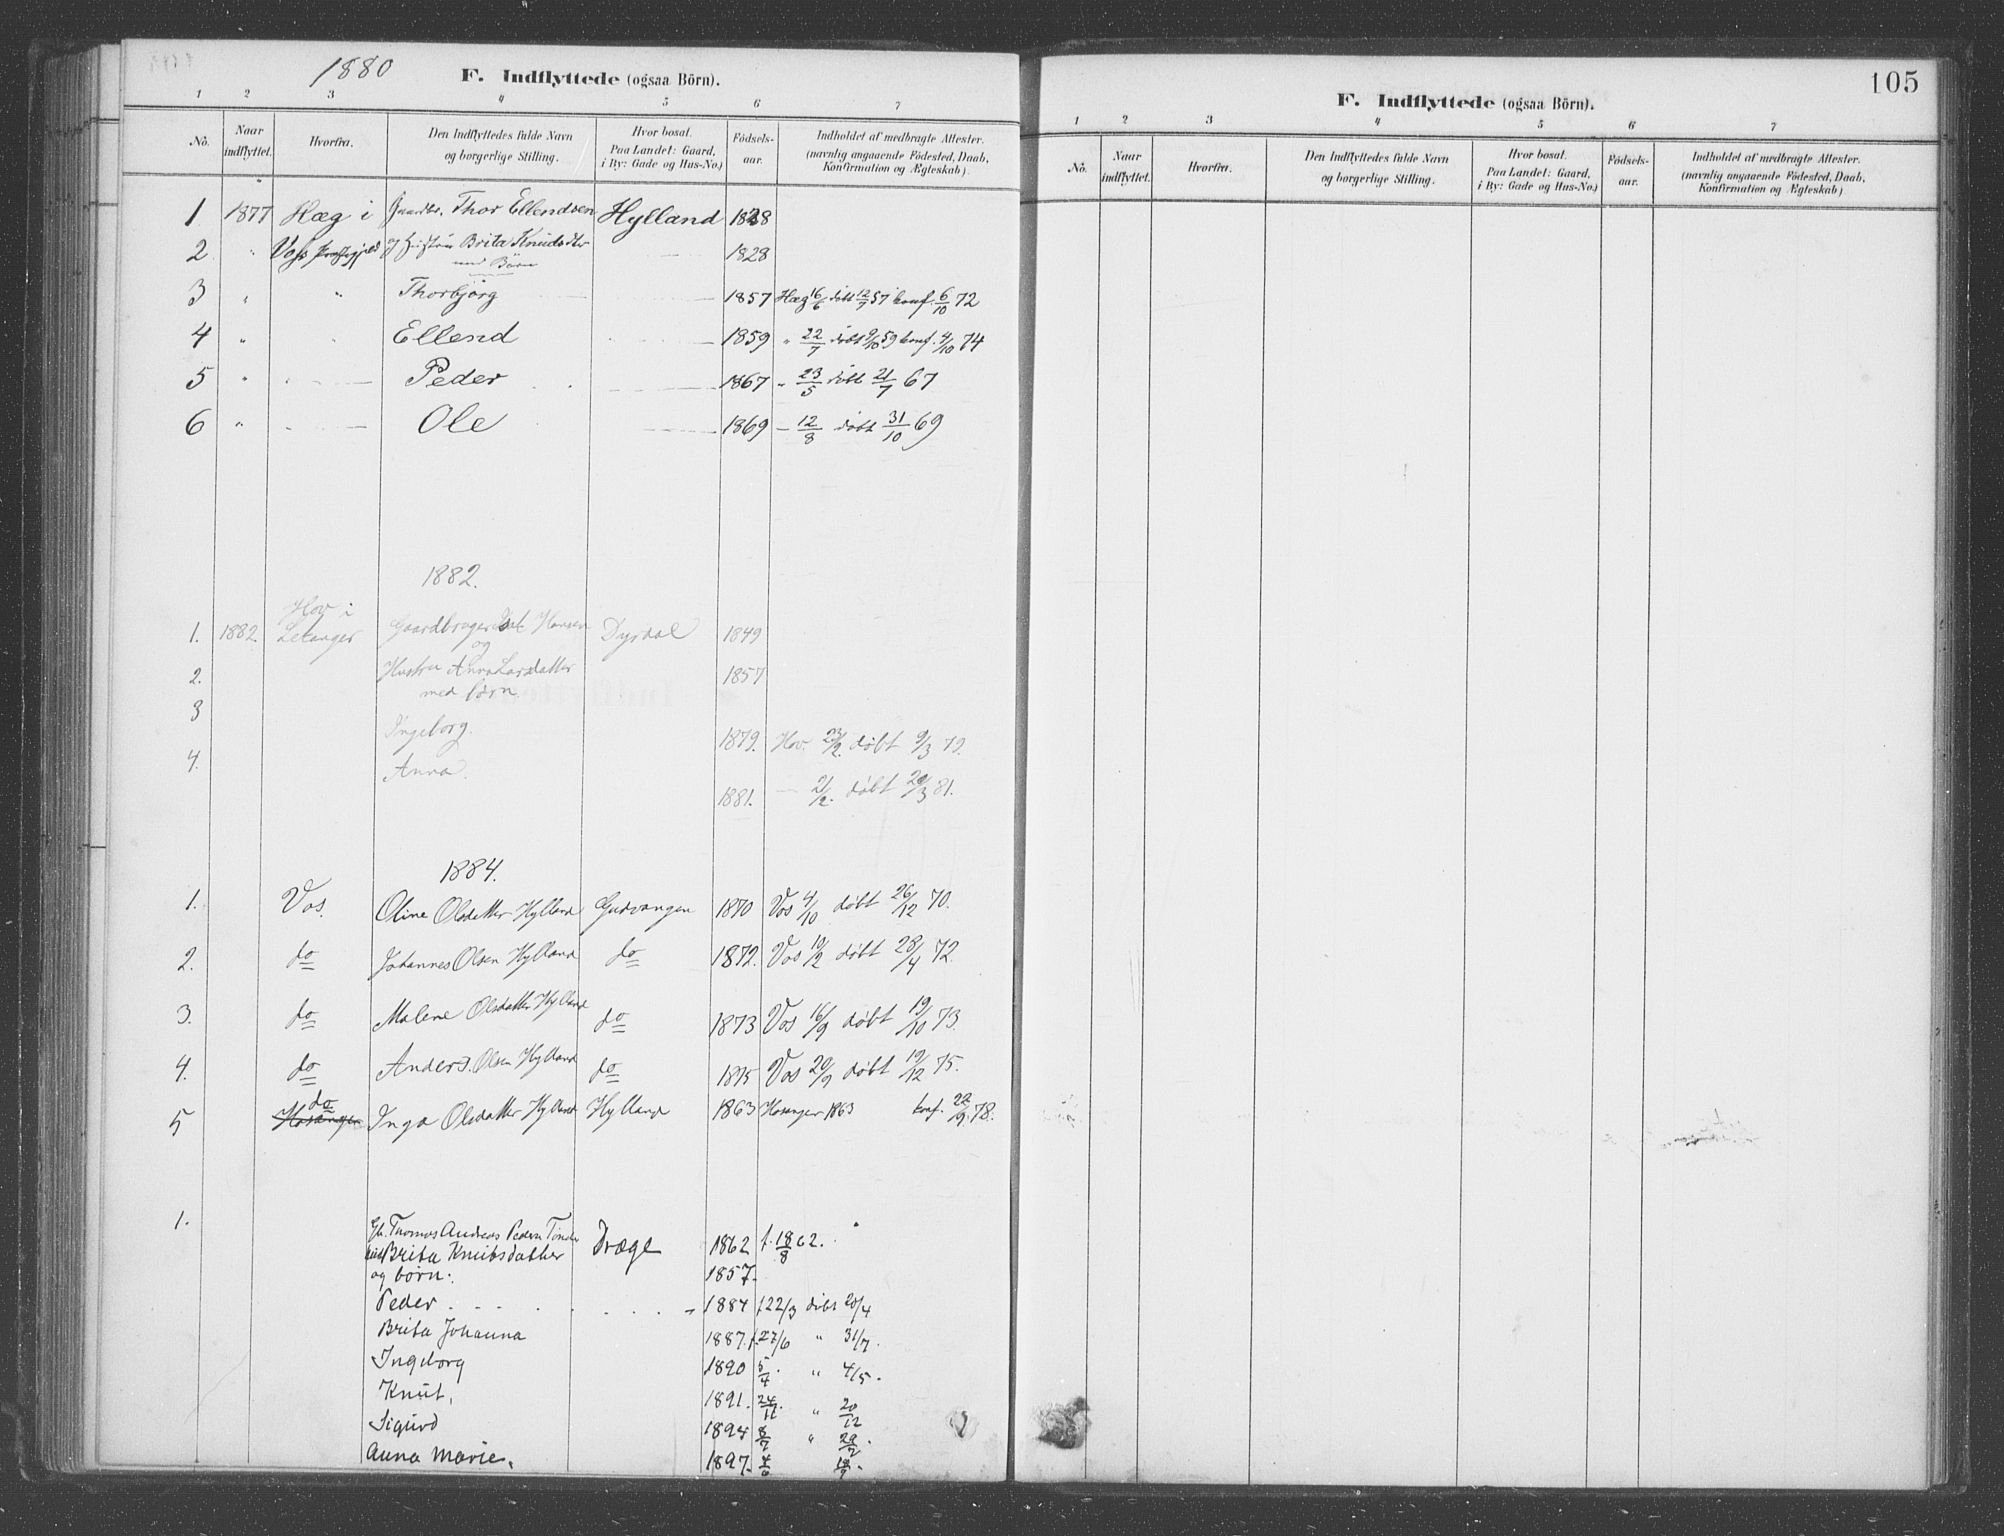 1880 F. Indflyttede (ogsaa Börn).
1 2 3 4 5 6 7
No. Naar indflyttet. Hvorfra. Den Indflyttedes fulde Navn og borgerlige Stilling. Hvor bosat. Paa Landet: Gaard, i By: Gade og Hus-No.) Födsels-aar. Indholdet af medbragte Attester. (navnlig angaaende Födested, Daab, Konfirmation og Ægteskab).
1 1877 Hæg i Gaardbr. Thor Ellendsen Hylland 1828
2 " Vos Præstegjeld og Hustru Brita Knudsdtr 1828
med Börn
3 " " Thorbjörg 1857 Hæg 16/6 döbt 12/7 57 konf. 6/10 72
4 " " Ellend 1859 " 22/7 döbt 9/10 59 konf. 4/10 74
5 " Peder 1867 " 23/5 döbt 21/7 67
6 " Ole 1869 — 12/8 döbt 31/10 69
1882.
Hov i
1. 1882. Lekanger Gaardbruger Hansen Dyrdal 1849
og
2. Hustru Anna Larsdatter 1857
med børn.
3 Ingeborg. 1879. Hov. 23/2. døbt 9/3 79.
4. Anna. 1881. — 21/2. døbt 20/3 81.
1884.
1. Vos. Oline Olsdatter Hylland Gudvangen 1870 Vos 4/10 døbt 26/12 70.
2. do Johannes Olsen Hylland do 1872. Vos 19/2 døbt 28/4 72.
3. do Malene Olsdatter Hylland do 1873 Vos 16/9 døbt 19/10 73.
4. do Anders. Olsen Hylland do 1875 Vos 20/9 døbt 19/12 75.
do
5 Hosanger Inga Olsdatter Hylland Hylland 1863 Hosanger 1863 konf. 22/9. 78.
1. Gb. Thomas Andreas Pedersen Tønder Dræge 1862 f. 18/8 62.
Brita Knudsdatter
og børn. 1857.
Peder 1884 f 22/3 döbt 20/4
Brita Johanna 1887. f. 27/6 " 31/7.
Ingeborg 1890 5/4. " 4/5.
Knut. 1891. 24/11. " 20/12
Sigurd 1894 8/7 " 29/7.
Anna Marie. 1897.
105
F. Indflyttede (ogsaa Börn).
1 2 3 4 5 6 7
No. Naar indflyttet. Hvorfra. Den Indflyttedes fulde Navn og borgerlige Stilling. Hvor bosat. Paa Landet: Gaard, i By: Gade og Hus-No.) Födsels-aar. Indholdet af medbragte Attester. (navnlig angaaende Födested, Daab, Konfirmation og Ægteskab).